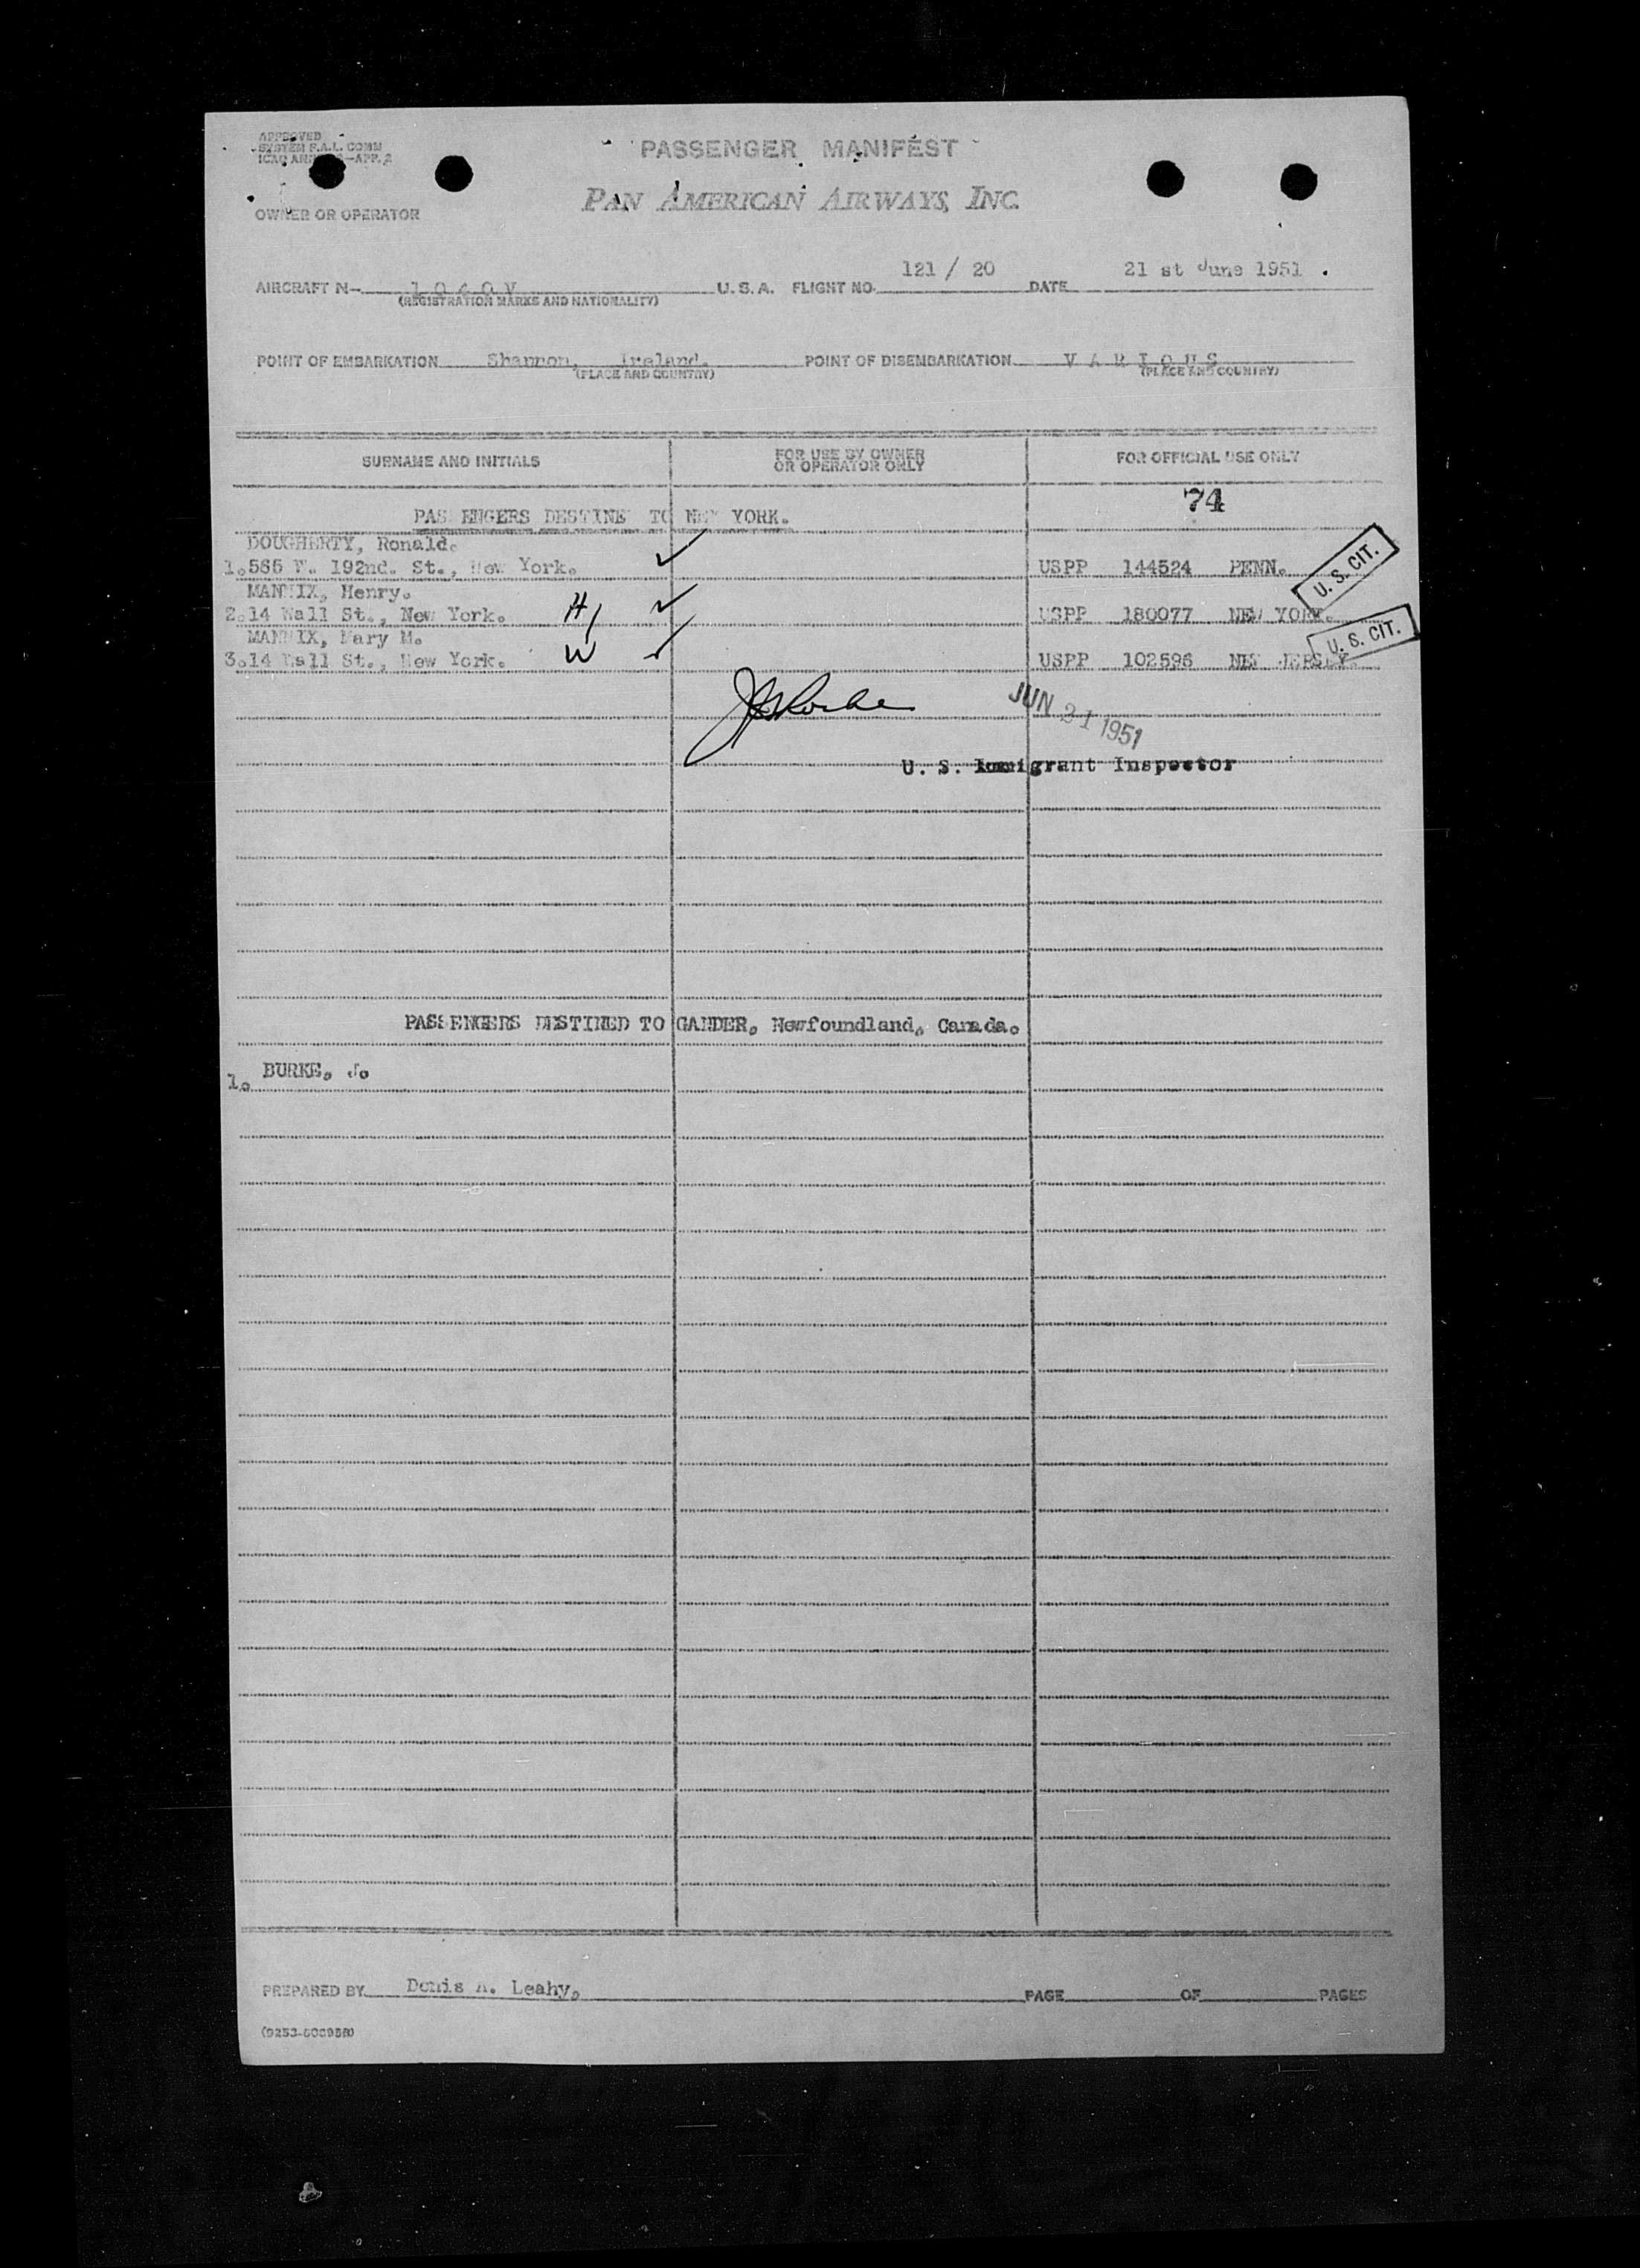 APPROVED
SYSTEM F.A.L. COMM
ICAO ANNEX 9-APP. 2
PASSENGER MANIFEST
PAN AMERICAN AIRWAYS, INC.
OWNER OR OPERATOR
AIRCRAFT N- 1 0 4 0 V U. S. A. FLIGHT NO. 121 / 20 DATE 21 st June 1951 .
(REGISTRATION MARKS AND NATIONALITY)
POINT OF EMBARKATION Shannon, Ireland. POINT OF DISEMBARKATION V A R I O U S
(PLACE AND COUNTRY) (PLACE AND COUNTRY)
SURNAME AND INITIALS FOR USE BY OWNER OR OPERATOR ONLY FOR OFFICIAL USE ONLY
74
PASSENGERS DESTINED TO NEW YORK.
DOUGHERTY, Ronald.
1. 565 W. 192nd. St., New York. ✓ USPP 144524 PENN. U. S. CIT.
MANNIX, Henry.
2. 14 Wall St., New York. H/ ✓ USPP 180077 NEW YORK.
MANNIX, Mary M. U. S. CIT.
3. 14 Wall St., New York. W ✓ USPP 102596 NEW JERSEY.
JUN 21 1951
U. S. Immigrant Inspector
PASSENGERS DESTINED TO GANDER, Newfoundland, Canada.
1. BURKE, J.
PREPARED BY Denis A. Leahy. PAGE OF PAGES